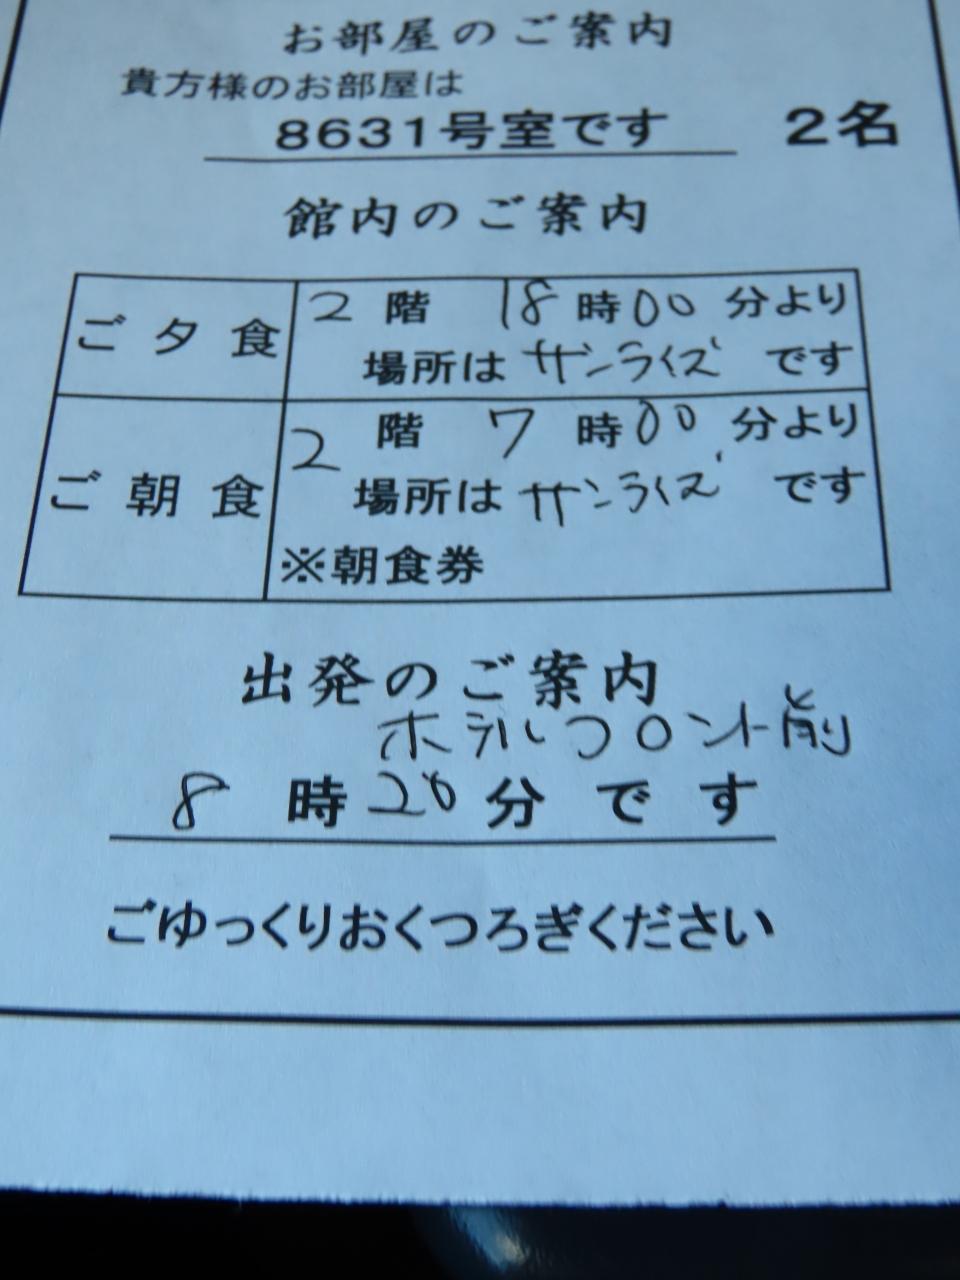 お部屋のご案内
貴方様のお部屋は
8631号室です 2名
館内のご案内
ご夕食 2階 18時00分より
場所はサンライズです
ご朝食 2階 7時00分より
場所はサンライズです
※朝食券
出発のご案内
ホテルフロント前
8時20分です
ごゆっくりおくつろぎください